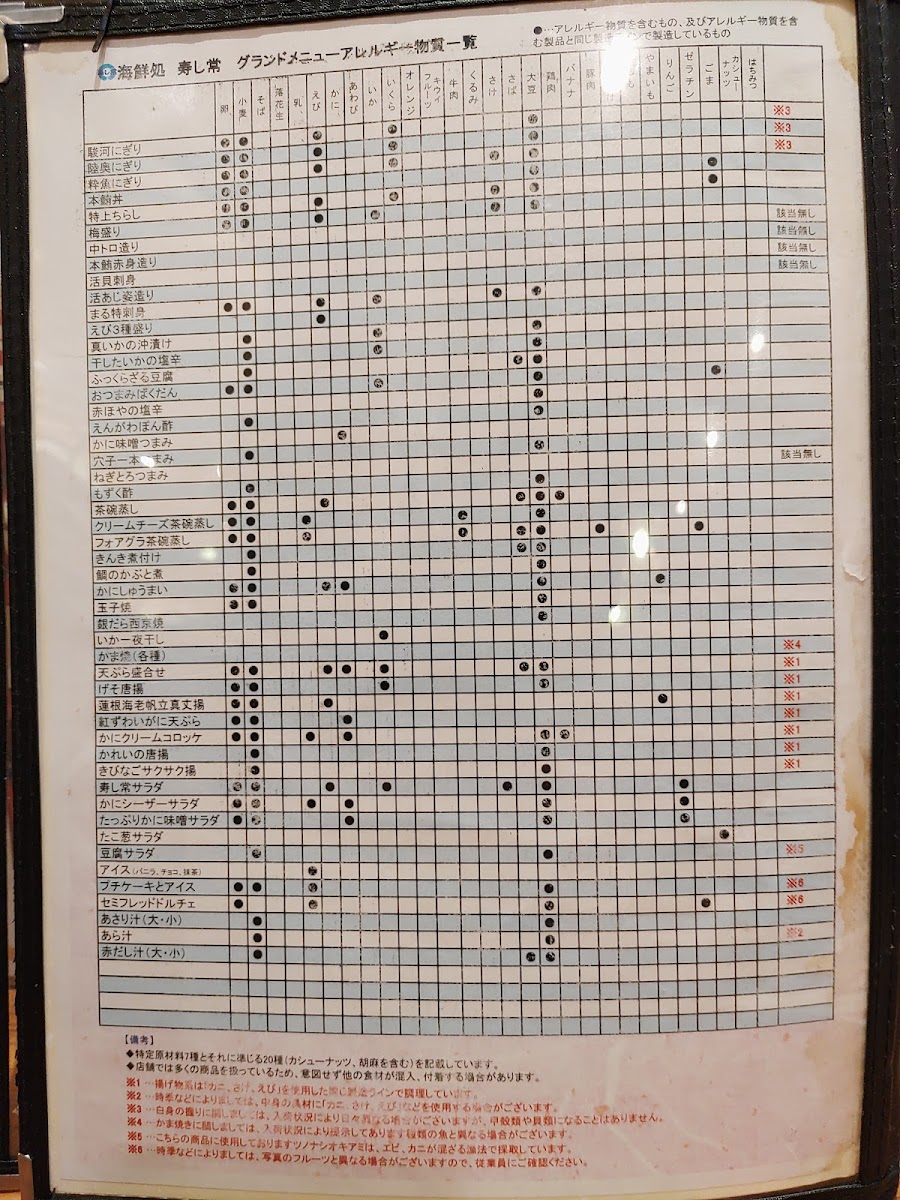 ●…アレルギー物質を含むもの、及びアレルギー物質を含
む製品と同じ製造ラインで製造しているもの
海鮮処 寿し常 グランドメニューアレルギー物質一覧
卵 小麦 そば 落花生 乳 えび かに あわび いか いくら オレンジ キウィフルーツ 牛肉 くるみ さけ さば 大豆 鶏肉 バナナ 豚肉 もも やまいも りんご ゼラチン ごま カシューナッツ はちみつ
※3
駿河にぎり ※3
陸奥にぎり ※3
粋魚にぎり
本鮪丼
特上ちらし
梅盛り 該当無し
中トロ造り 該当無し
本鮪赤身造り 該当無し
活貝刺身 該当無し
活あじ姿造り
まる特刺身
えび3種盛り
真いかの沖漬け
干したいかの塩辛
ふっくらざる豆腐
おつまみばくだん
赤ほやの塩辛
えんがわぽん酢
かに味噌つまみ
穴子一本つまみ
ねぎとろつまみ 該当無し
もずく酢
茶碗蒸し
クリームチーズ茶碗蒸し
フォアグラ茶碗蒸し
きんき煮付け
鯛のかぶと煮
かにしゅうまい
玉子焼
銀だら西京焼
いか一夜干し
かま焼(各種) ※4
天ぷら盛合せ ※1
げそ唐揚 ※1
蓮根海老帆立真丈揚 ※1
紅ずわいがに天ぷら ※1
かにクリームコロッケ ※1
かれいの唐揚 ※1
きびなごサクサク揚 ※1
寿し常サラダ
かにシーザーサラダ
たっぷりかに味噌サラダ
たこ葱サラダ
豆腐サラダ ※5
アイス(バニラ、チョコ、抹茶)
プチケーキとアイス ※6
セミフレッドドルチェ ※6
あさり汁(大・小)
あら汁 ※2
赤だし汁(大・小)
【備考】
◆特定原材料7種とそれに準じる20種(カシューナッツ、胡麻を含む)を記載しています。
◆店舗では多くの商品を扱っているため、意図せず他の食材が混入、付着する場合があります。
※1 …揚げ物系は「カニ、さけ、えび」を使用した同じ製造ラインで調理しています。
※2 …時季などによりましては、中身の具材に「カニ、さけ、えび」などを使用する場合がございます。
※3 …白身の握りに関しましては、入荷状況により日々異なる場合がございますが、甲殻類や貝類になることはありません。
※4 …かま焼きに関しましては、入荷状況により提示してあります種類の魚と異なる場合がございます。
※5 …こちらの商品に使用しておりますツノナシオキアミは、エビ、カニが混ざる漁法で採取しています。
※6 …時季などによりましては、写真のフルーツと異なる場合がございますので、従業員にご確認ください。